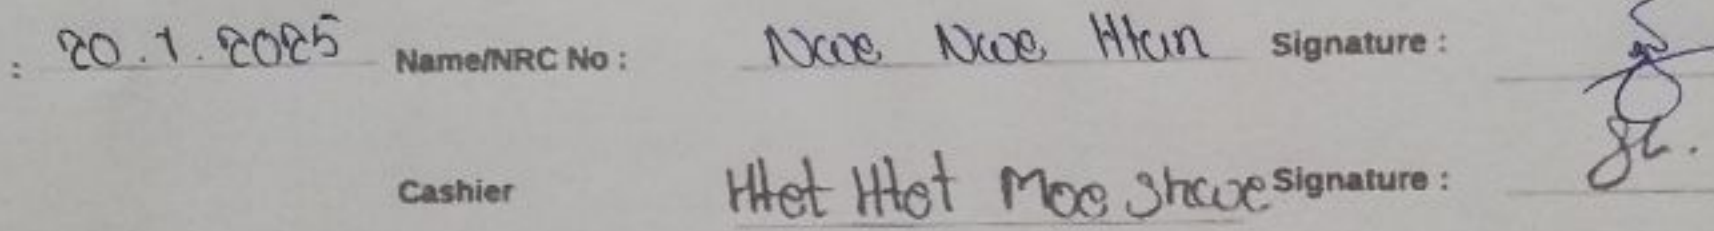 : 20.1.2025 Name/NRC No : Nwe Nwe Htun Signature :
Cashier Htet Htet Moe Shwe Signature :